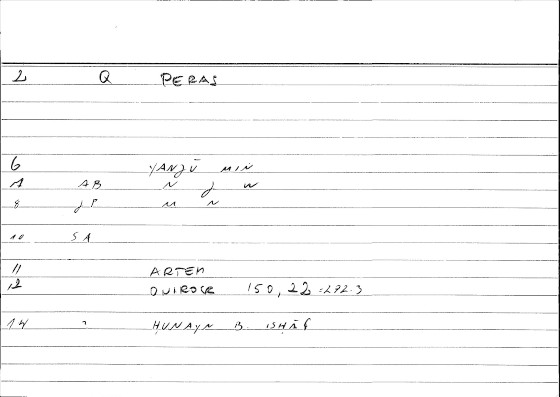 2 Q PERAS
6 YANZŪ MIN
7 AB N J W
8 JP M N
10 SA
11 ARTEM
12 OVIROCR 150, 22 = 292.3
14 ? HUNAYN B. ISHĀQ